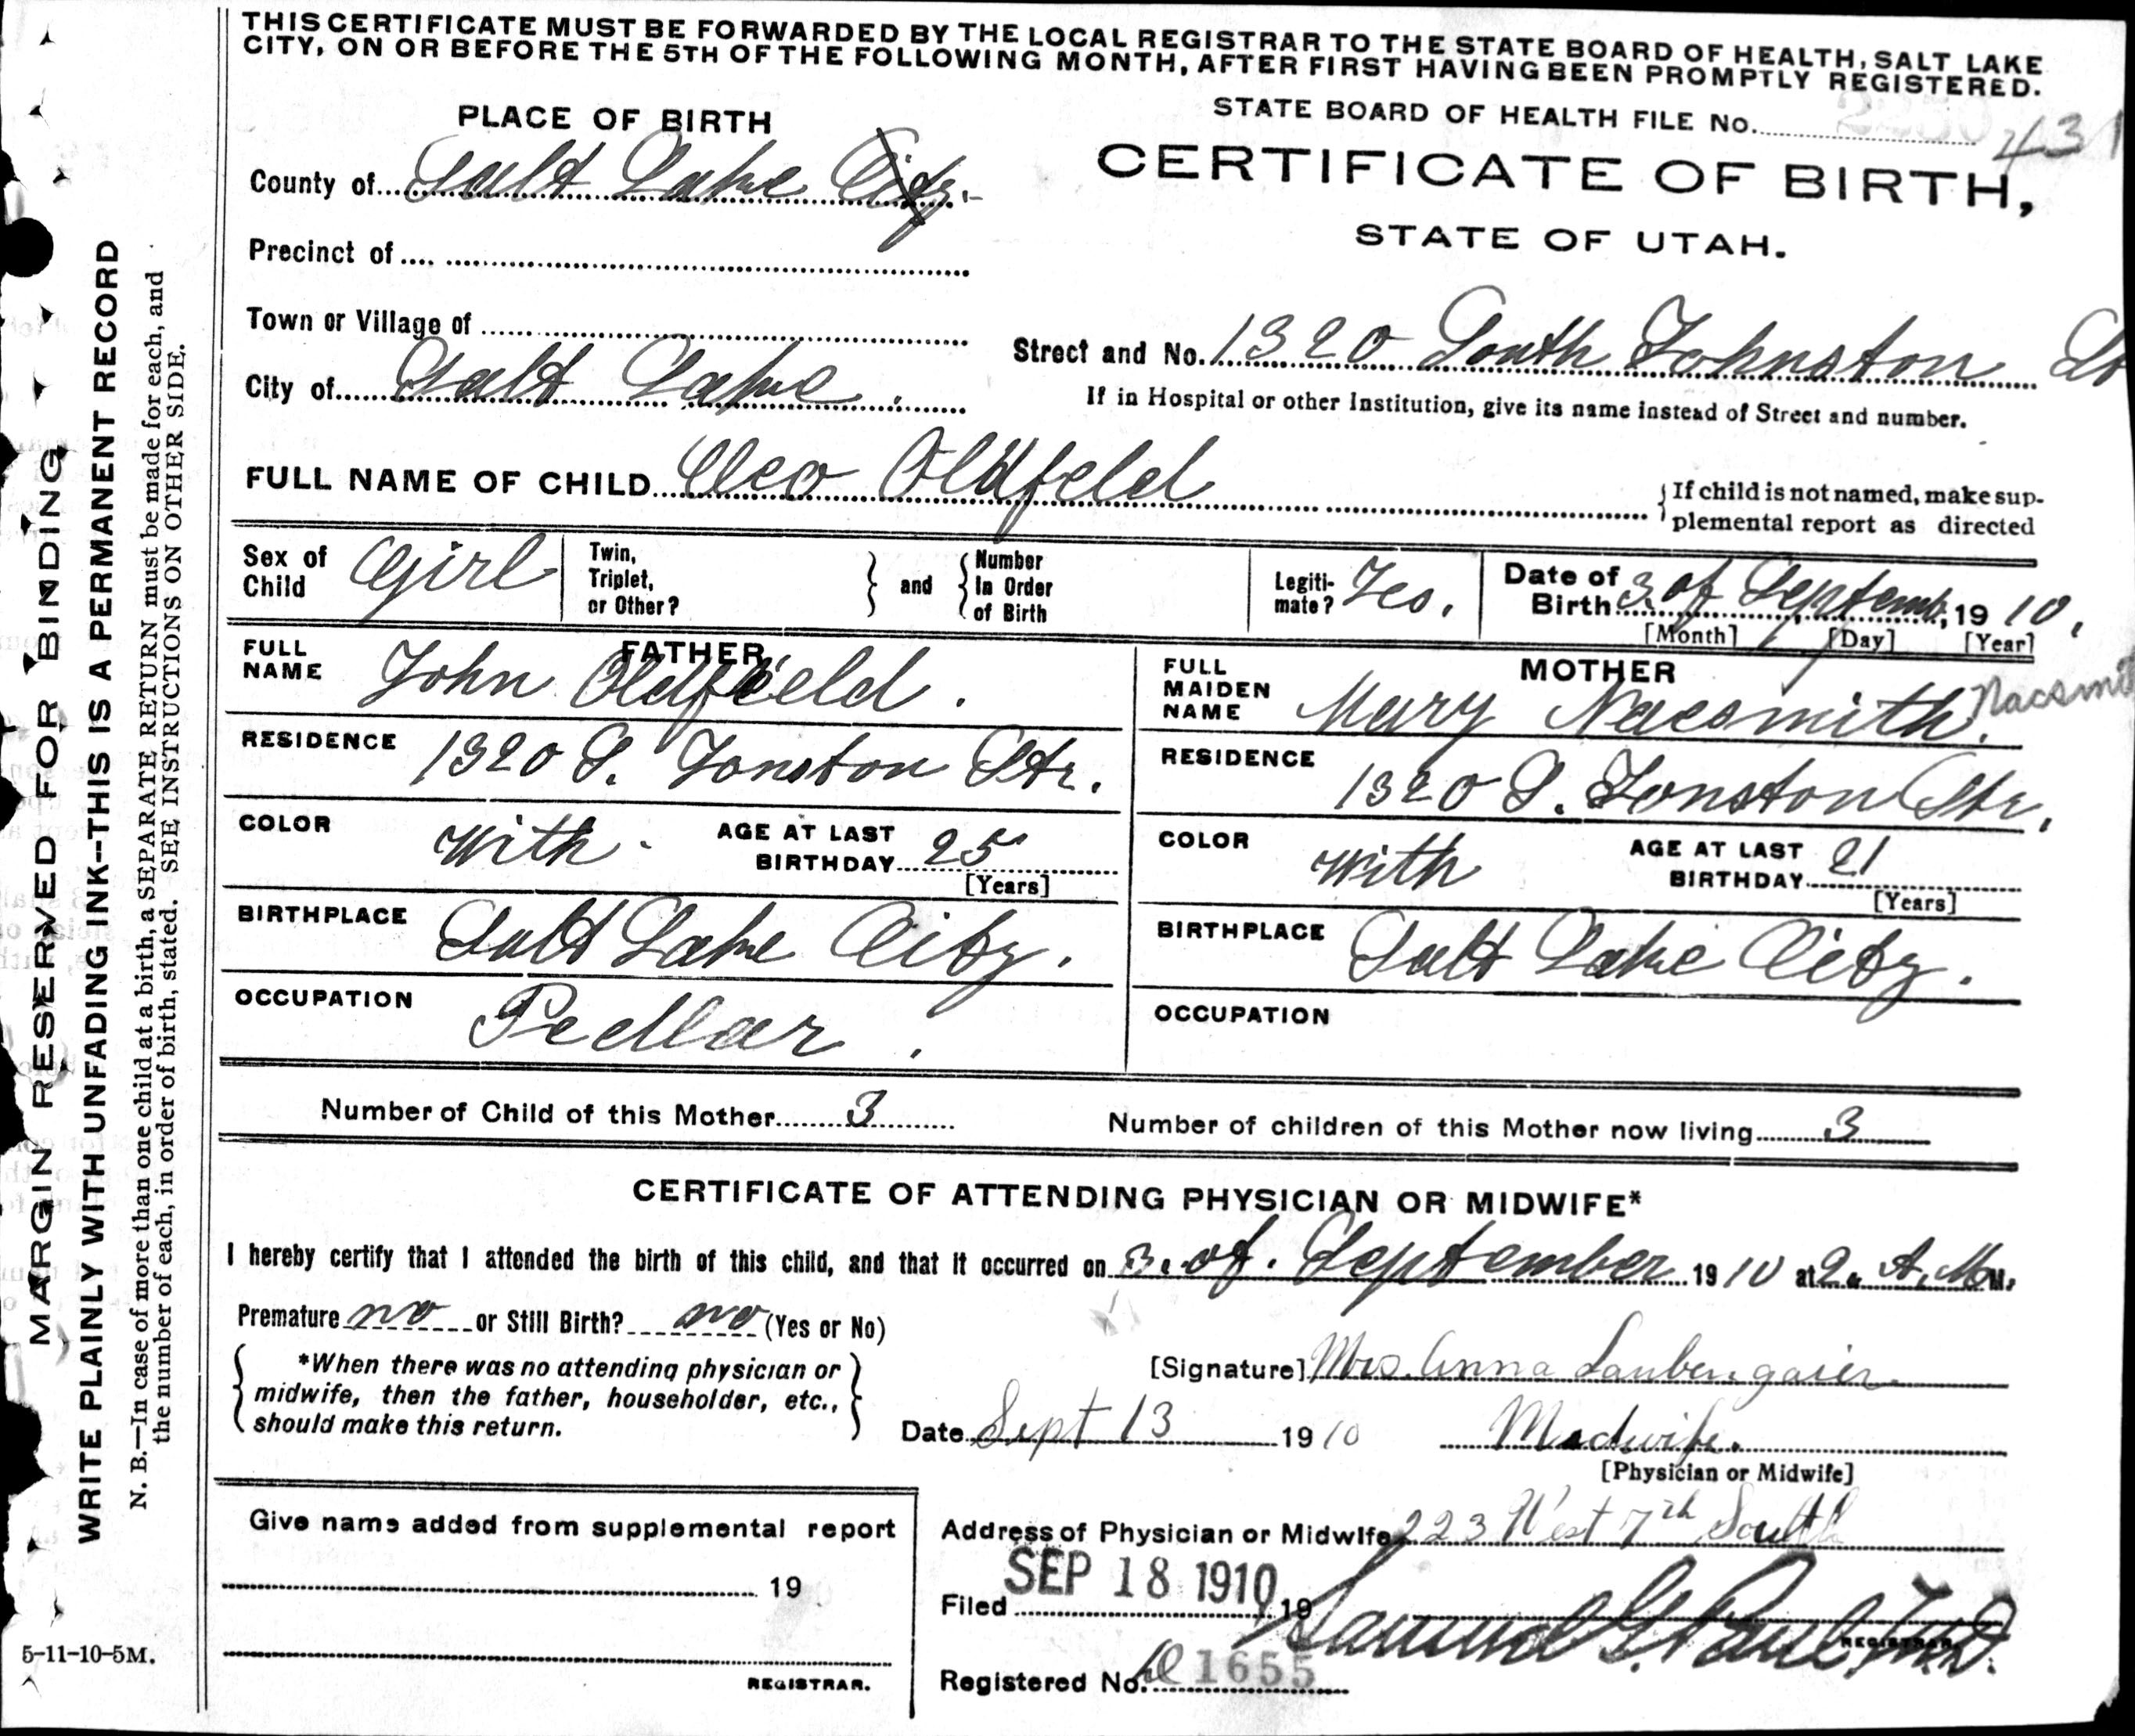 THIS CERTIFICATE MUST BE FORWARDED BY THE LOCAL REGISTRAR TO THE STATE BOARD OF HEALTH, SALT LAKE
CITY, ON OR BEFORE THE 5TH OF THE FOLLOWING MONTH, AFTER FIRST HAVING BEEN PROMPTLY REGISTERED.
STATE BOARD OF HEALTH FILE No. 431
PLACE OF BIRTH
CERTIFICATE OF BIRTH,
STATE OF UTAH.
County of Salt Lake City.
Precinct of
Town or Village of
Street and No. 1320 South Johnston St
City of Salt Lake.
If in Hospital or other Institution, give its name instead of Street and number.
FULL NAME OF CHILD Cleo Oldfeld
If child is not named, make sup-
plemental report as directed
Sex of Child Girl
Twin, Triplet, or Other?
and
Number In Order of Birth
Legiti-mate? Yes.
Date of Birth 3 of Septemb, 1910,
[Month] [Day] [Year]
FATHER
FULL NAME John Oldfield.
RESIDENCE 1320 S. Jonston Str.
COLOR With. AGE AT LAST BIRTHDAY 25
[Years]
BIRTHPLACE Salt Lake City.
OCCUPATION Pedlar.
MOTHER
FULL MAIDEN NAME Mary Naesmith. Nacsmi
RESIDENCE 1320 S. Jonston Str.
COLOR With AGE AT LAST BIRTHDAY 21
[Years]
BIRTHPLACE Salt Lake City.
OCCUPATION
Number of Child of this Mother 3
Number of children of this Mother now living 3
CERTIFICATE OF ATTENDING PHYSICIAN OR MIDWIFE*
I hereby certify that I attended the birth of this child, and that it occurred on 3. of. September 1910 at 2. A. M. M.
Premature no or Still Birth? no (Yes or No)
*When there was no attending physician or
midwife, then the father, householder, etc.,
should make this return.
[Signature] Mrs. Anna Laubengaier
Date Sept 13 1910 Midwife.
[Physician or Midwife]
Address of Physician or Midwife 223 West 7th South
Filed SEP 18 1910 19 Samuel G. Paul M.D.
REGISTRAR.
Registered No. 1655
Give name added from supplemental report
19
REGISTRAR.
MARGIN RESERVED FOR BINDING
WRITE PLAINLY WITH UNFADING INK—THIS IS A PERMANENT RECORD
N. B.—In case of more than one child at a birth, a SEPARATE RETURN must be made for each, and
the number of each, in order of birth, stated. SEE INSTRUCTIONS ON OTHER SIDE.
5-11-10-5M.